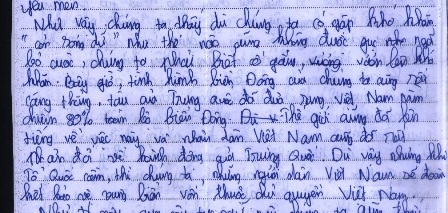 yếu mến.
Như vậy chúng ta thấy dù chúng ta có gặp khó khăn
"còn sóng dữ" như thế nào cũng không được gục ngã
bỏ cuộc, chúng ta phải biết cố gắng, vượt khó
khăn. Bây giờ, tình hình biển Đông của chúng ta cũng rất
căng thẳng, tàu của Trung Quốc đã đưa Việt Nam
chiếm 80% toàn bộ biển Đông. Thế giới cũng đã lên
tiếng về việc này và nhân dân Việt Nam cũng đã rất
phản đối về hành động của Trung Quốc. Dù vậy nhưng khi
Tổ Quốc cần, thì chúng ta, những người dân Việt Nam sẽ đoàn
kết bảo vệ biển vốn thuộc chủ quyền Việt Nam.